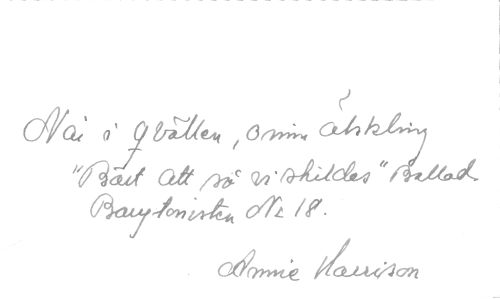 När i qvällen, o min älskling
"Bäst att så vi skildes" Ballad.
Barytonisten No 18.
Annie Harrison